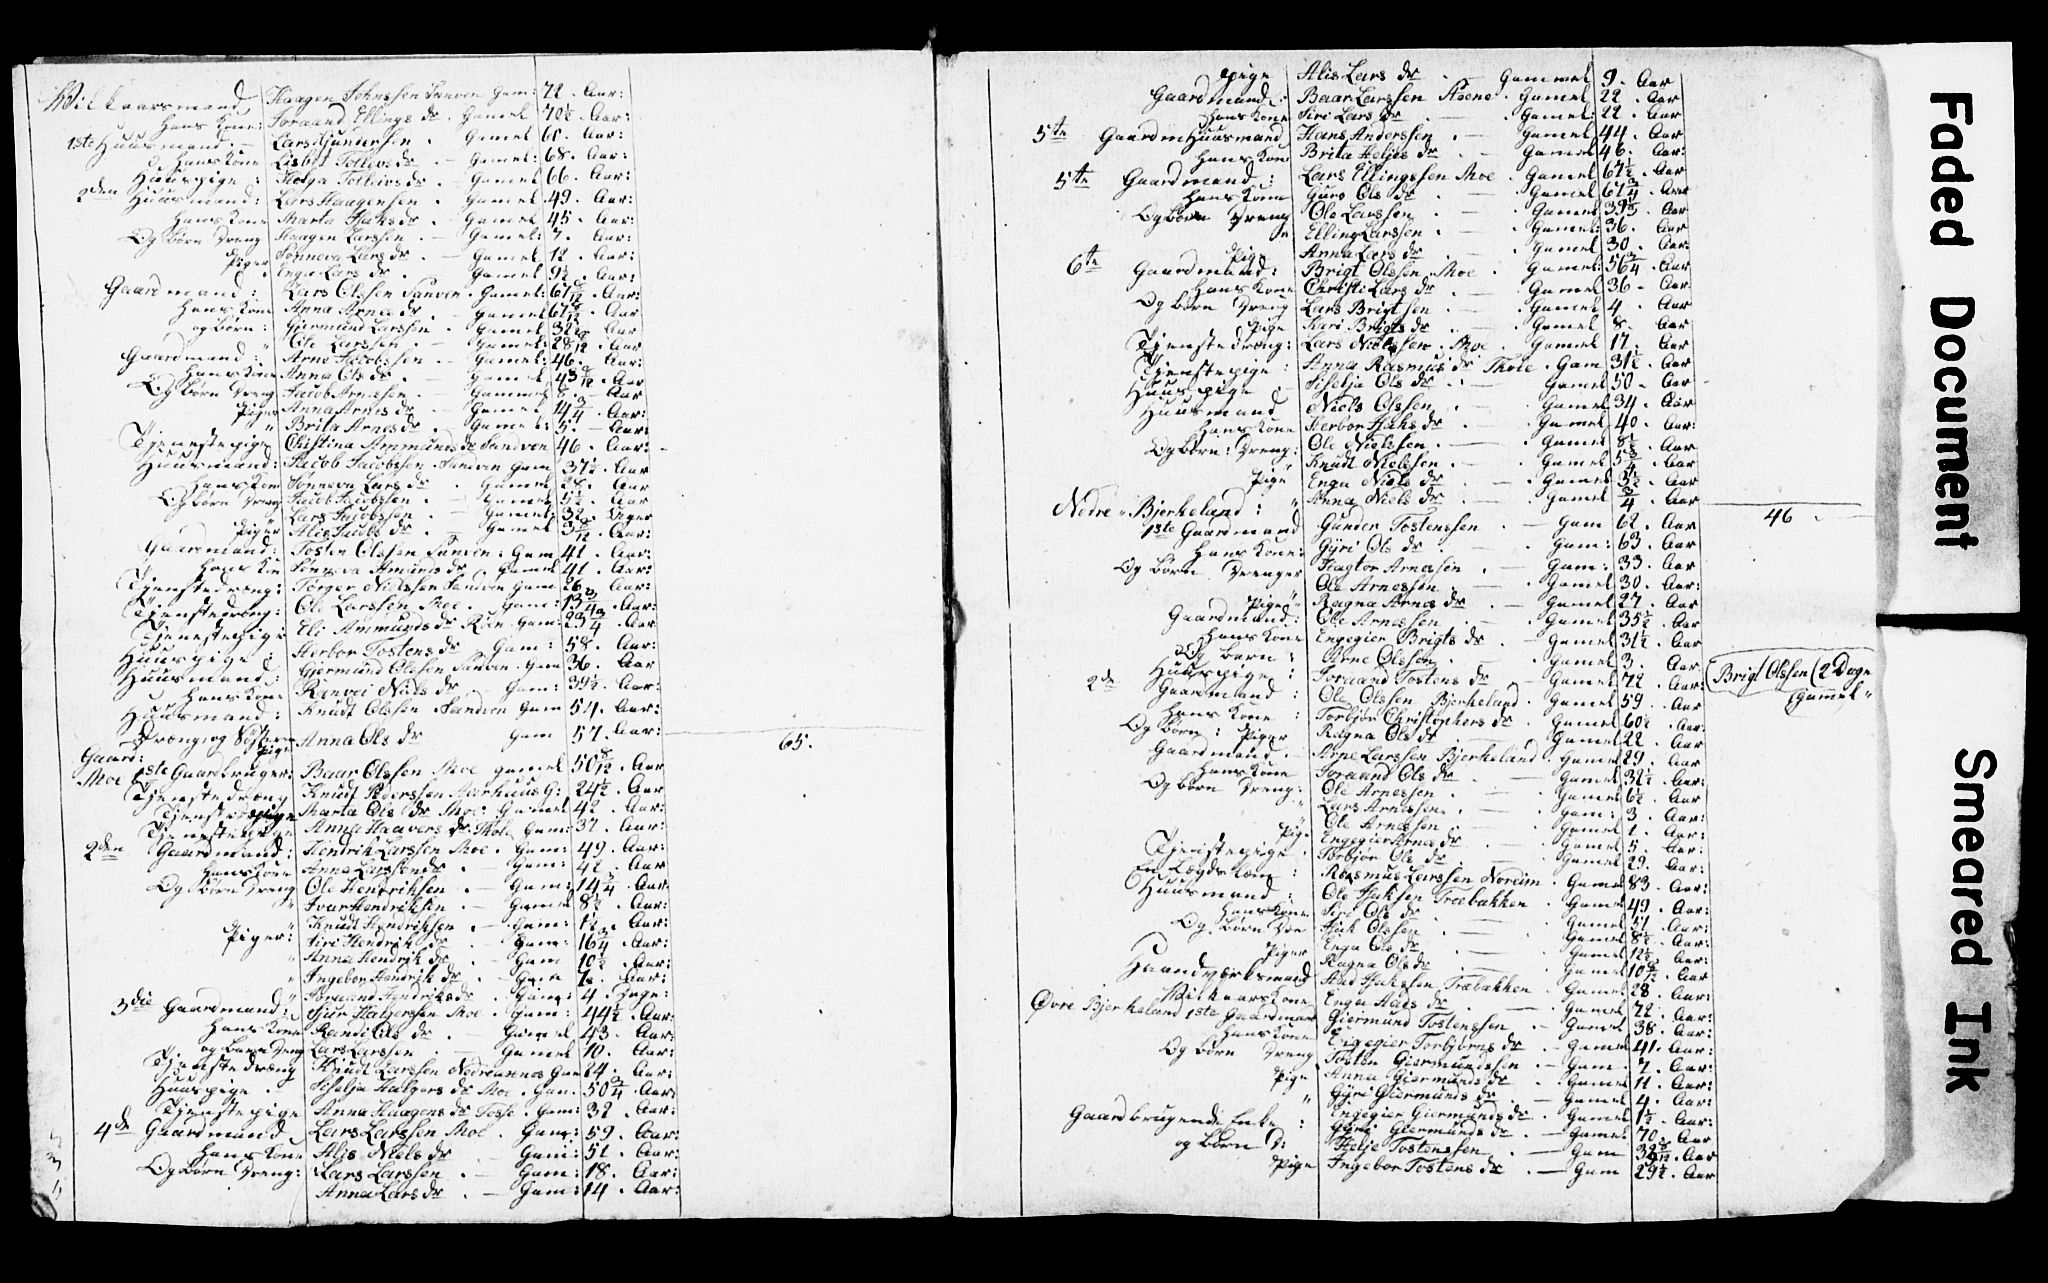 Vilkaarsmand Haagen Johnssen Sanven Gam: 72 . Aar:
hans Kone: Joraand Ellings dr . Gamel 70½ . Aar:
1ste Huusmand . — Lars Gundersen . Gamel 60 . Aar:
hans Kone Lisbet Tolleivs dr . — Gamel: 68 . Aar:
Huuspige : Helga Tolleivs dr . — Gamel 66 . Aar:
2den Huusmand : Lars Haagensen . Gamel 49 . Aar:
hans Kone Marta Isaks dr . Gamel 45 . Aar:
Og børn Dreng Haagen Larssen . — Gamel: 7 . Aar:
Piger Sønneva Lars dr . — Gamel 12 . Aar:
" Enga Lars dr . Gamel 9½ . Aar:
Gaardmand : Lars Olssen Sanven . Gamel: Aar:
hans Kone Anna Arnes dr . Gamel Aar:
og børn : Giermund Larssen . Gamel Aar
" Ole Larssen . — Gamel: Aar
Gaardmand : Arne Jacobssen — Gamel: 46 . Aar:
hans Kone Anna Ols dr . — Gamel Aar
Og børn Dreng Jacob Arnesen . — Gammel Aar
Piger Anna Arnes dr . — Gamel 14¾ . Aar:
" Brita Arnes dr . Gamel: 5 . — Aar:
Tjenestepige Christina Ammunds dr Sandven 46 . Aar:
Huusmand : Jacob Jacobssen . Sandven Gam 37½ . Aar
hans Kone Sønneva Lars dr . Gamel 28 . Aar
Og børn Dreng Jacob Jacobssen . — Gamel 5½ . Aar
Lars Jacobssen . — Gamel: 32 . Uger
Piger Alis Jacobs dr — Gamel Aar:
Gaardmand : Tosten Olssen Sanven : Gam 41 . Aar:
hans Kone Sønneva Amunds dr Gamel 41 . Aar:
Tjenestedreng: Torger Nielssen Sandven Gam 26 . Aar:
Tjenestedreng: Ole Larssen Moe . Gam: 13¾ . Aar:
Tjenestepige Eli Ammunds dr Gam: 23¾ . Aar
Huuspige : Herbor Tostens dr Gam: 58 . Aar:
Huusmand : Gjermund Olssen Sanven . Gam 36 . Aar
hans Kone Ranvei Niels dr . Gam: 39½ . Aar:
Huusmand : Knudt Olssen Sandven Gam 54 . Aar:
Pige Anna Ols dr Gam 57 . Aar:
65.
Gaard:
Moe 1ste Gaardbruger: Baar Olssen Moe Gamel Aar
Tjenestedreng Knudt Pederssen Aarhuus G: 24½ . Aar
Tjenestepige Marta Ols dr Moe . Gamel 42 . Aar:
Tjenestepige Anna Haavers dr . Thole Gam: 37 . Aar:
2den Gaardmand : Hendrik Larssen Moe . Gam: 49 . Aar:
hans Kone Anna Larssens dr . — Gam: 42 . Aar
Og børn Dreng Ole Hendriksen . — Gam: 14¾ . Aar
" Ivar Hendriksen . — Gamel 8½ . Aar:
Knudt Hendriksen . — Gam: 1½ . Aar:
Piger : Siri Hendrik dr . Gam: 16¾ . Aar:
" Anna Hendrik dr . — Gam 10½ . Aar:
" Ingebor Hendrik dr . — Gam 7 . Aar:
" Joraand Hendriks dr . — Gam: 4 .
3die Gaardmand : Siur Halgerssen Moe . Gam: 44½ . Aar:
hans Kone Randi Ols dr . Gamel 43 . Aar:
og børn Dreng Lars Larssen . — Gamel 10 . Aar:
Tjenestedræng Knudt Larssen Nedreannes Gam 24 . Aar:
Huuspige Siselja Halgers dr Moe . Gam: Aar:
Tjenestepige Anna Haagens dr Tosse . Gam: 32 . Aar:
4de Gaardmand Lars Larssen Moe . Gam: 59 . Aar:
hans Kone Alis Niels dr Gam: 51 . Aar:
Og børn Dreng: Lars Larssen . — Gam: 18 . Aar:
Anna Lars dr . — Gam: 14 . Aar:
Pige Alis Lars dr . — Gammel 9 . Aar
Gaardmand: Baar Larssen . Gamel 22 . Aar
hans Kone Siri Lars dr . Gamel: 22 . Aar
5te Gaardm Huusmand Hans Anderssen . — Gamel 44 . Aar
hans Kone Brita Heljes dr . — Gamel 46 . Aar:
5te Gaardmand : Lars Ellingssen Moe . Gamel 67½ . Aar
hans Kone Guro Ols dr . Gamel Aar
Og børn Dreng Ole Larssen . — Gamel Aar
Elling Larssen . — Gamel: 36 . Aar
Pige Anna Lars dr . — Gamel 30 . Aar:
6te Gaardmand: Brigt Olssen Moe . Gamel: 56¾ . Aar
hans Kone Christi Lars dr . Gamel 36 . Aar
Og børn Dreng Lars Brigtsen . — Gamel 4 . Aar
Pige Kari Brigts dr . — Gamel 8 . Aar
Tjenestedræng: Lars Nielssen . Moe . Gamel 17 . Aar
Tjenestepige : Anna Rasmus dr Thole . Gam 31½ . Aar
Huuspige Siselja Ols dr . — Gamel 50 . Aar
Huusmand Niels Olssen . — Gamel 34 . Aar
hans Kone Herbor Isaks dr . Gamel 40 . Aar:
Og børn : Dreng: Ole Nielssen . — Gamel 8½ . Aar
" Knudt Nielssen . — Gamel 5¾ . Aar
Pige Enga Niels dr . — Gamel 3½ . Aar
" Anna Niels dr — Gamel ¾ . Aar
46
Nedre " Bjerkeland :
1ste Gaardmand Gunder Tostenssen . — Gam 62 . Aar
hans Kone: Gyri Ols dr . — Gam: 63 . Aar
Og børn Drenger Hagtor Arnessen . — Gam: 33 . Aar
Ole Arnessen . — Gamel 30 . Aar:
Pige " Ragna Arnes dr . — Gamel 27 . Aar
Gaardmand: Ole Arnessen . — Gamel 35½ . Aar
hans Kone Engegier Brigts dr . — Gamel 31½ . Aar
Og børn : Arne Olssen . — Gamel 3 . Aar
Brigt Olssen (2 Dage
Gammel "
Huuspige : Joraand Tostens dr — Gamel 72 . Aar:
2de Gaardmand : Ole Olssen Bjerkeland . Gamel 59 . Aar
hans Kone : Torbjør Christophers dr . Gamel 60½ . Aar:
Og børn : Piger Ragna Ols dr . — Gamel 22 . Aar
Gaardmand . — Arne Larssen Bjerkeland . Gamel 29 . Aar
hans Kone Joraand Ols dr . — Gamel 32½ . Aar:
Og børn Dreng: Ole Arnessen . — Gamel 6½ . Aar
" Lars Arnessen . — Gam: 3 . Aar:
Ole Arnessen . — Gamel 1 . Aar:
Pige Engegier Arnes dr . — Gamel 5 . Aar:
Tjenstepige . Torbjør Ols dr . — Gamel 29 . Aar:
En Lægds Lem : Rasmus Larssen Nordim . Gamel 83 . Aar:
Huusmand : Ole Isaksen Træbakken . Gamel 49 . Aar:
hans Kone Siri Ols dr . — Gamel 51 . Aar:
Og børn Søn Isak Olssen . — Gamel 8½ . Aar:
Piger Enga Ols dr . — Gamel 12½ . Aar:
Ragna Ols dr . — Gamel 10½ . Aar
Haandværksmand Aad Isakssen Træbakken . Gamel 28 . Aar:
Vilkaars Kone Enga Aads dr . — Gamel 72 . Aar:
Øvre Bjerkeland 1ste Gaardmand Giermund Tostenssen . — Gamel 38 . Aar:
hans Kone Engegier Torbjørns dr . — Gamel 41 . Aar:
Og børn Dreng Tosten Giermundssen . — Gam 7 . Aar:
Pige Anna Giermunds dr . Gamel 11 . Aar:
" Gyri Giermunds dr . — Gamel 4 . Aar:
Engegier Giermunds dr . Gamel 1½ . Aar:
Gaardbrugende Enke : Gyri Giermunds dr . — Gamel 70 . Aar
og børn D: Helje Tostenssen . — Gam Aar
Pige Ingebor Tostens dr . — Gam 29½ . Aar
Faded Document
Smeared Ink